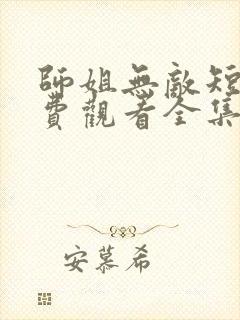 師姐無敵短
費觀看全集
安慕希